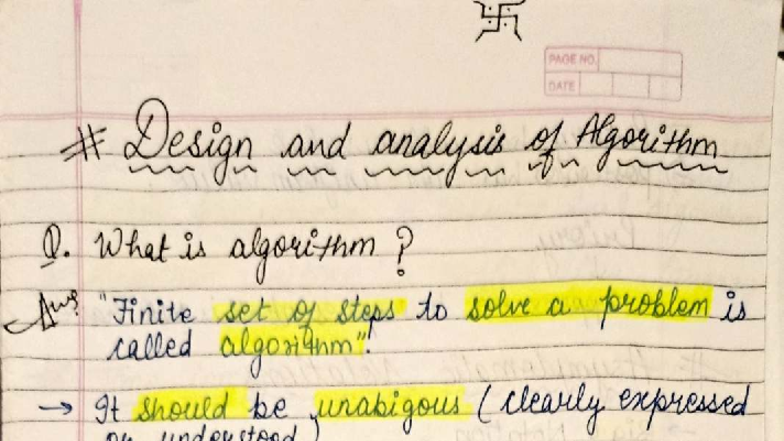 PAGE NO.
DATE
# Design and analysis of Algorithm
Q. What is algorithm ?
Ans "Finite set of steps to solve a problem is
called algorithm".
→ It should be unabigous (clearly expressed
or understood)